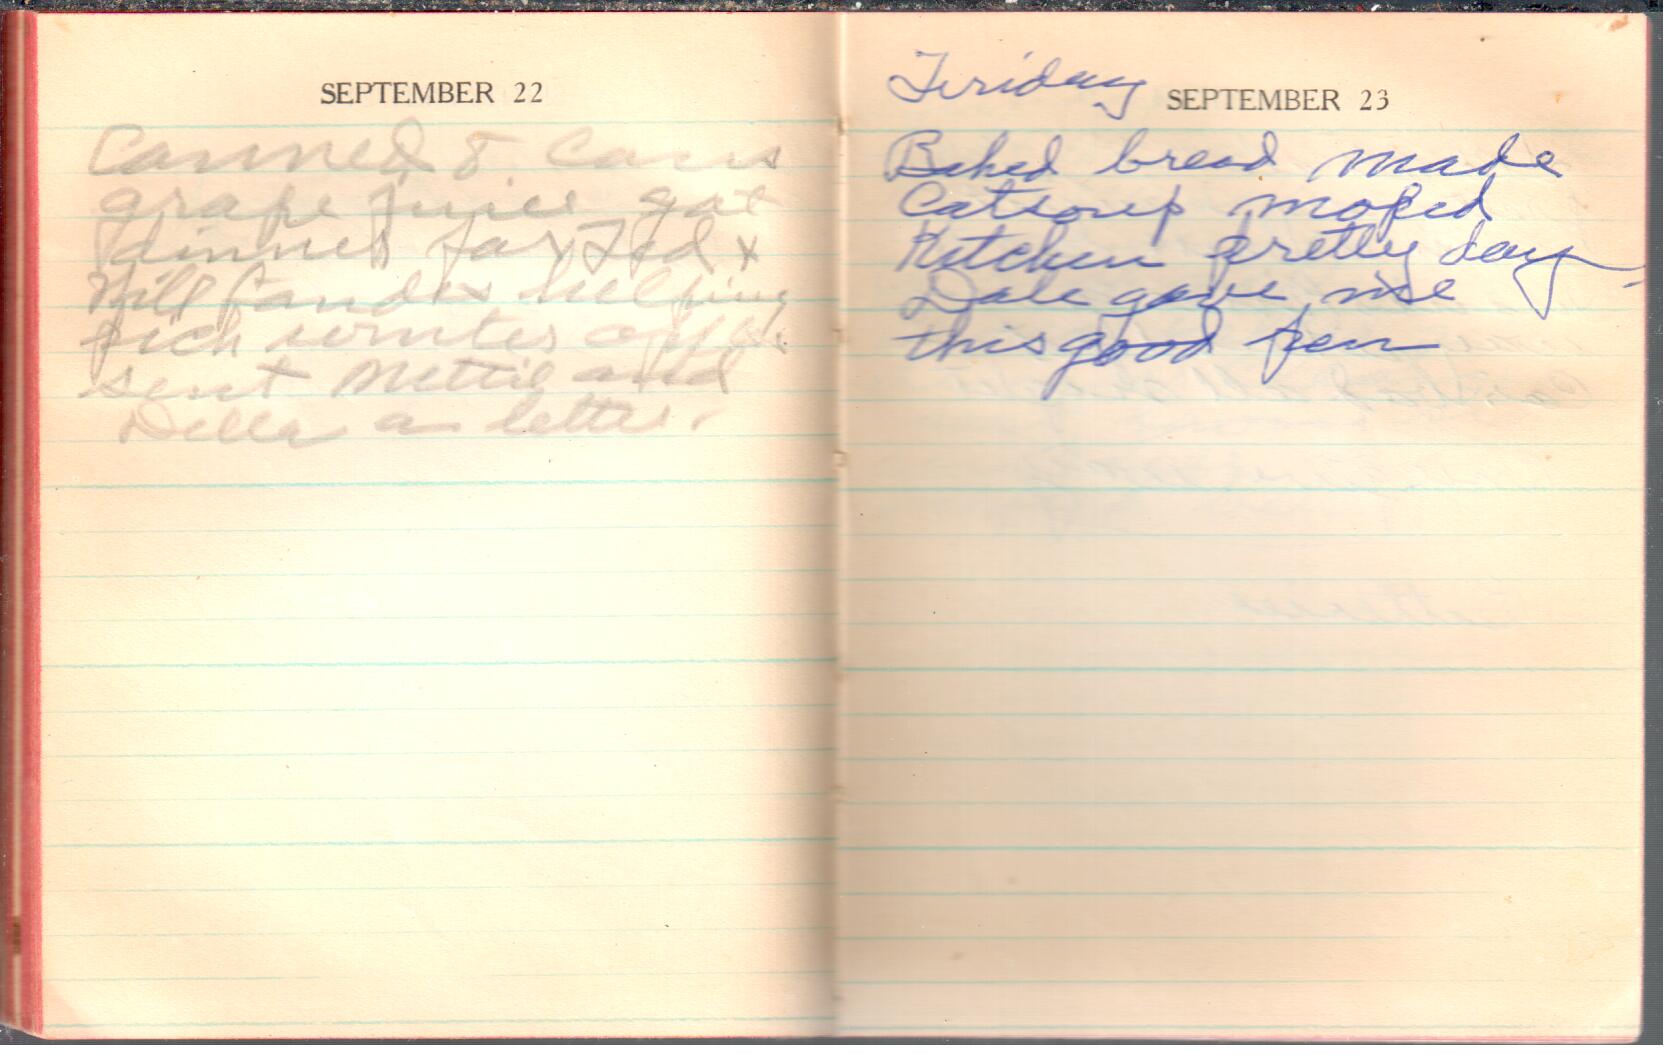 SEPTEMBER 22
Canned 8 cans
grape juice got
dinner for Ted &
Will helping
pick winter
sent Nettie and
Della a letter.
Friday SEPTEMBER 23
Baked bread made
Catsoup moped
Kitchen pretty day
Dale gave me
this good pen